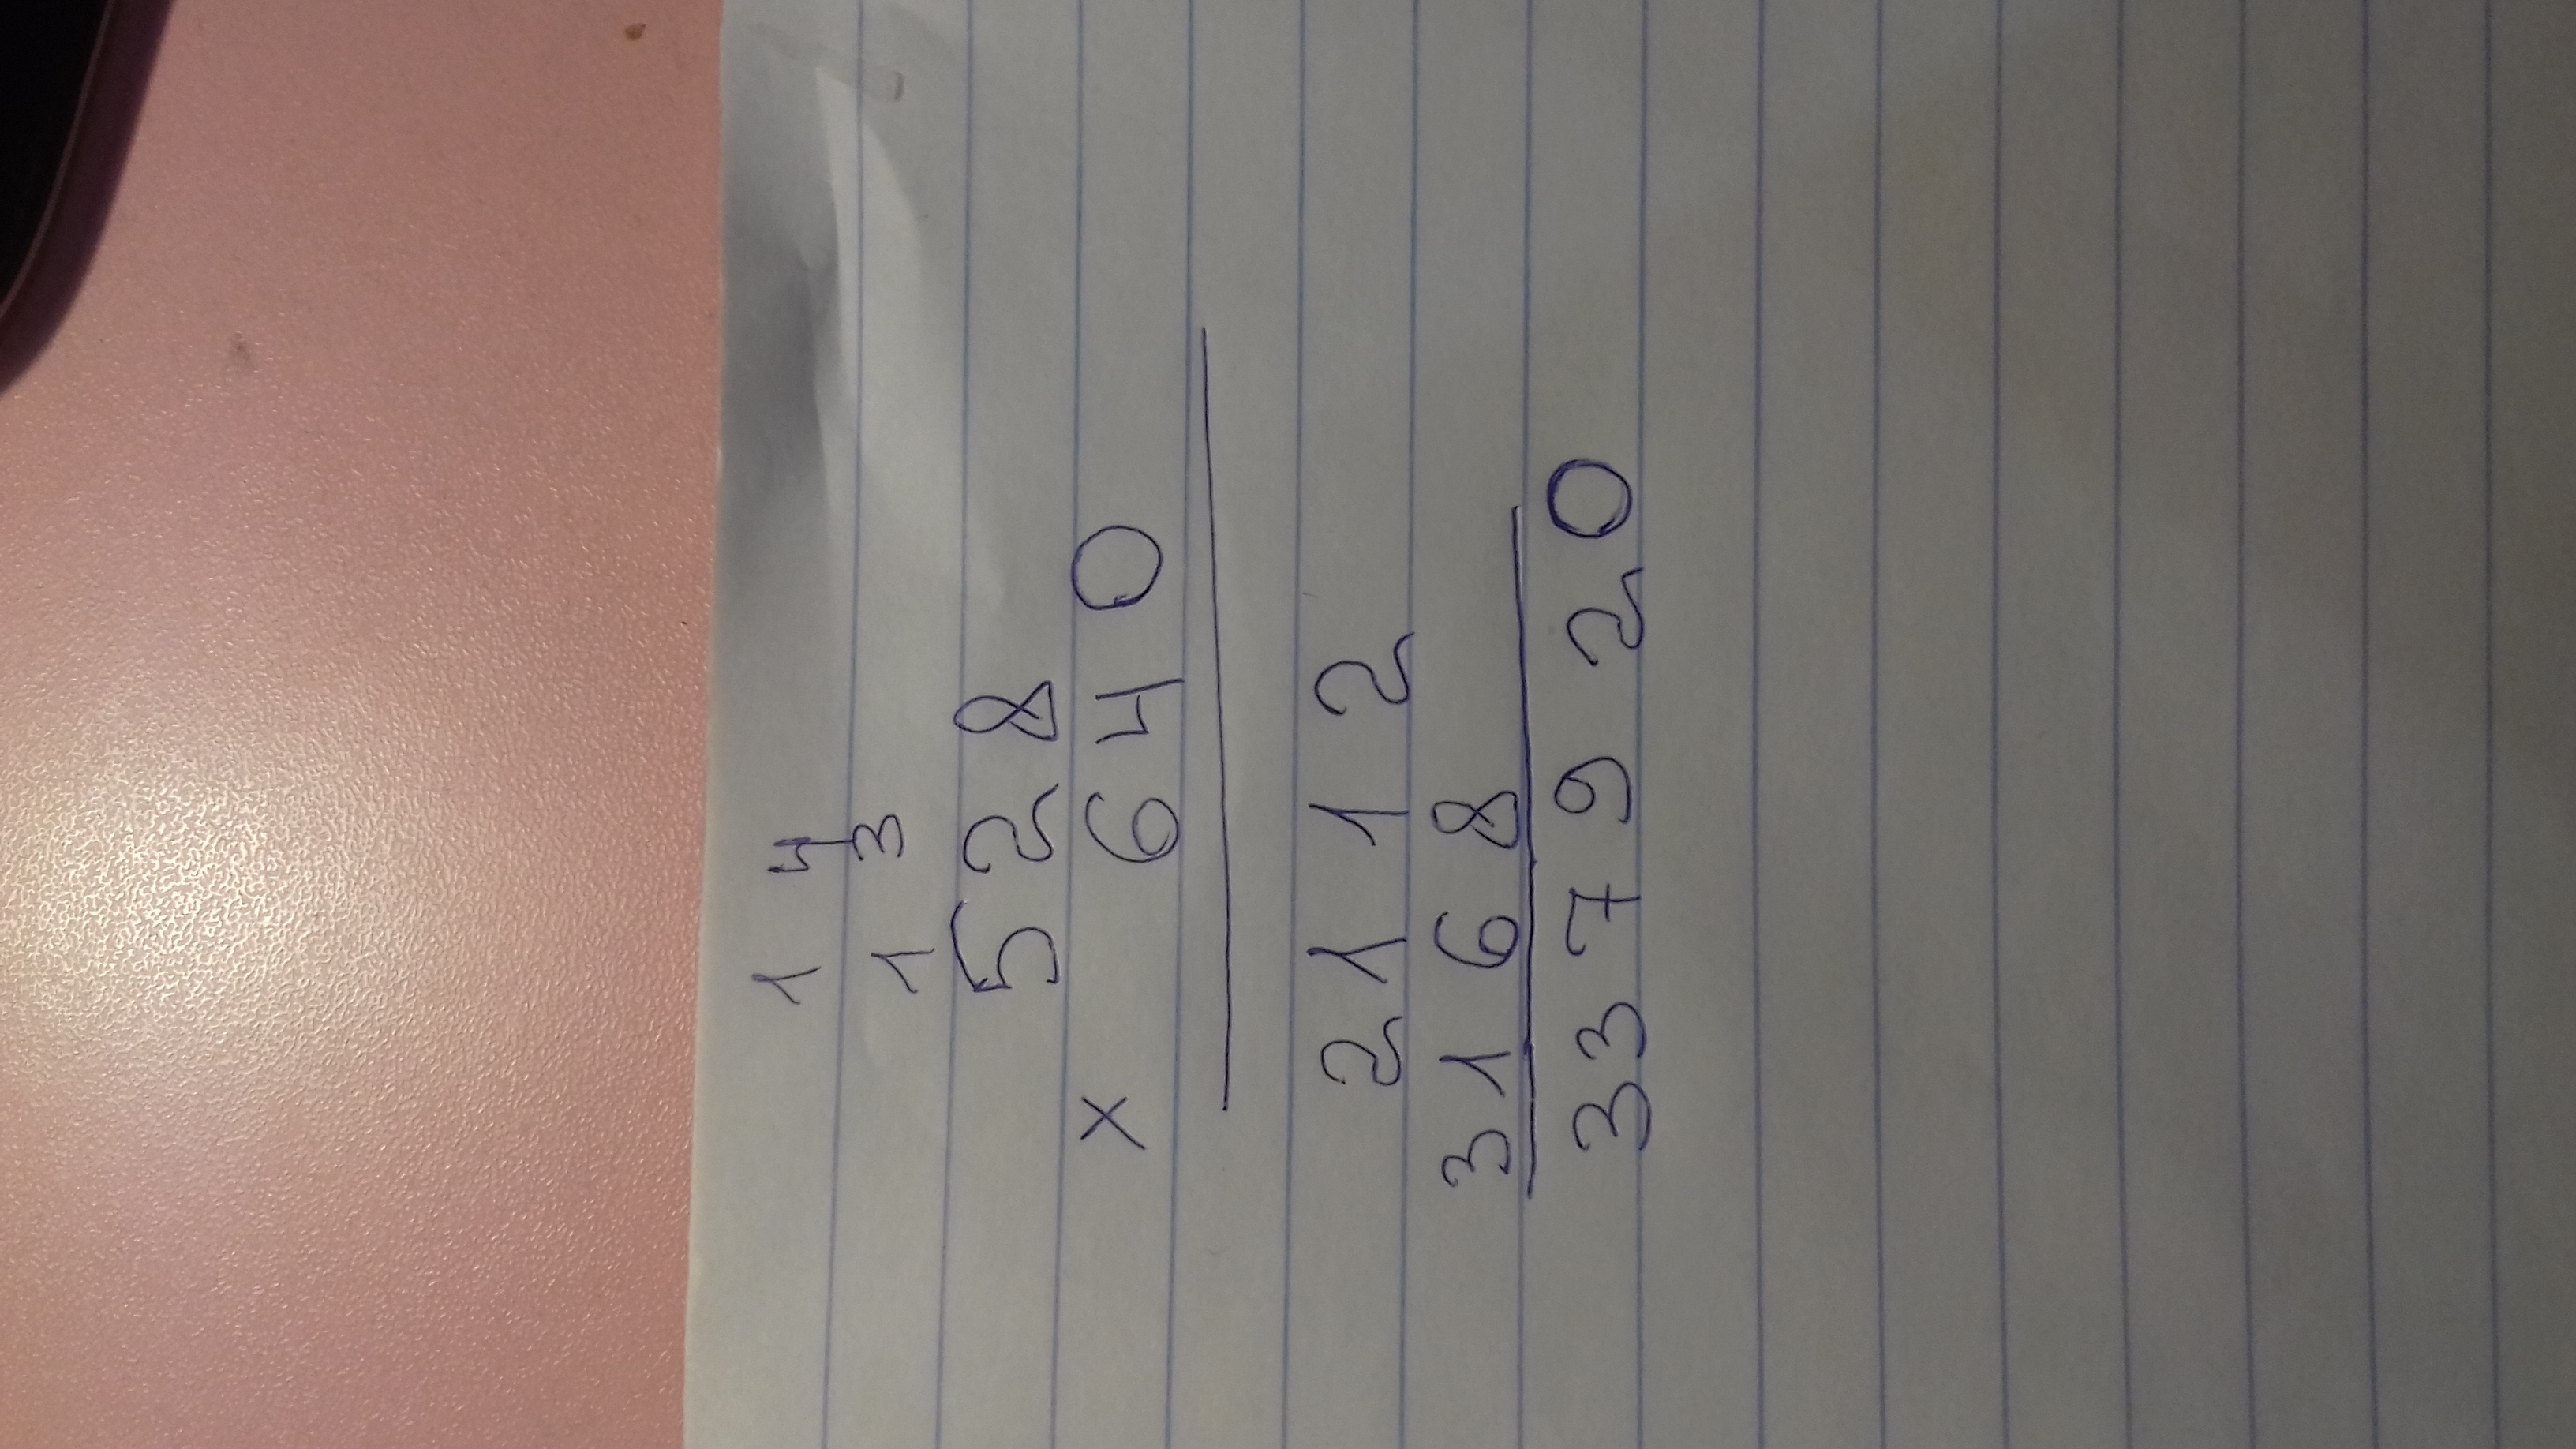 1 4
1 3
5 2 8
x 6 4 0
2 1 1 2
3 1 6 8
3 3 7 9 2 0